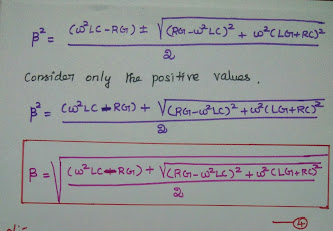 β² = (ω²LC-RG) ± √(RG-ω²LC)² + ω²(LG+RC)² / 2
Consider only the positive values.
β² = (ω²LC-RG) + √(RG-ω²LC)² + ω²(LG+RC)² / 2
β = √(ω²LC-RG) + √(RG-ω²LC)² + ω²(LG+RC)² / 2
—④